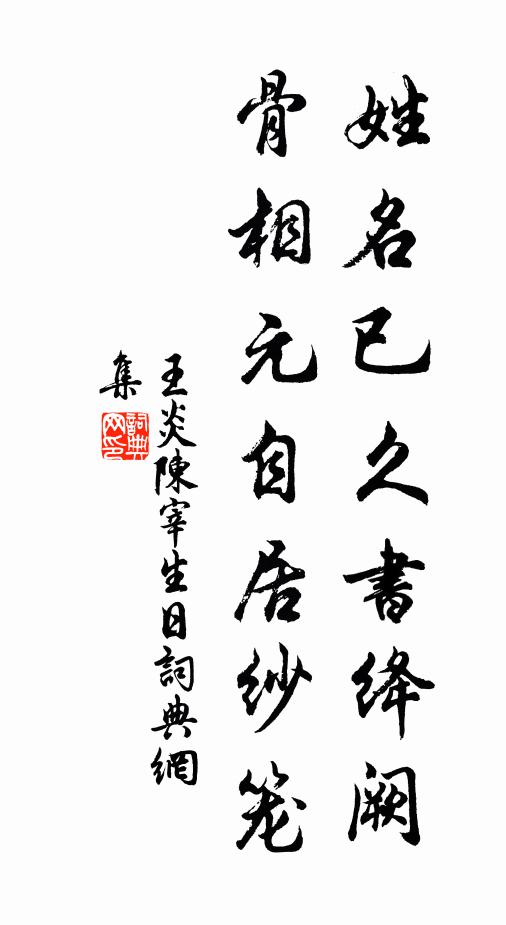 姓名已久書絳闕
骨相元自居紗籠
王炎陳宰生日詞典網
集
詞典网印